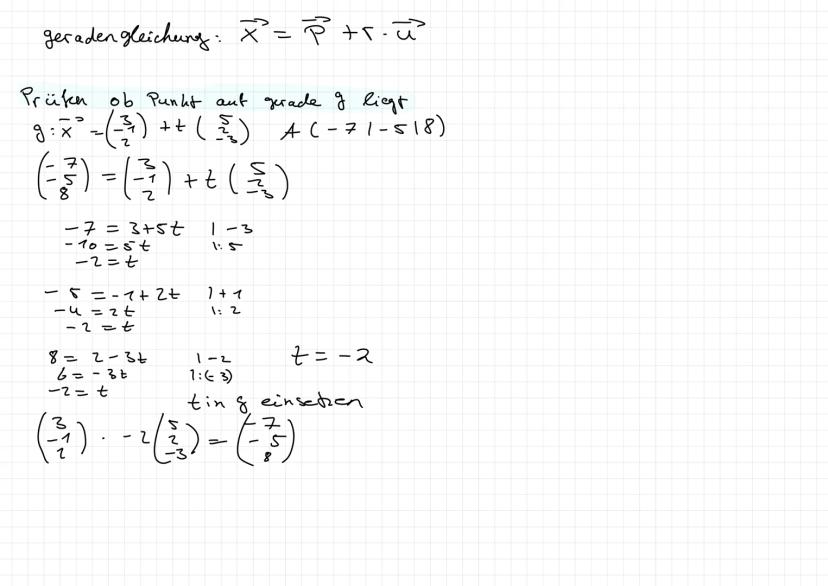 geradengleichung: x⃗ = p⃗ + r · u⃗
Prüfen ob Punkt auf gerade g liegt
g: x⃗ = (3 -1 2) + t (5 2 -3) A (-7 | -5 | 8)
(-7 -5 8) = (3 -1 2) + t (5 2 -3)
-7 = 3+5t | -3
-10 = 5t | :5
-2 = t
-5 = -1 + 2t | +1
-4 = 2t | :2
-2 = t
8 = 2 - 3t | -2 t = -2
6 = -3t | :(-3)
-2 = t
t in g einsetzen
(3 -1 2) · -2 (5 2 -3) = (-7 -5 8)